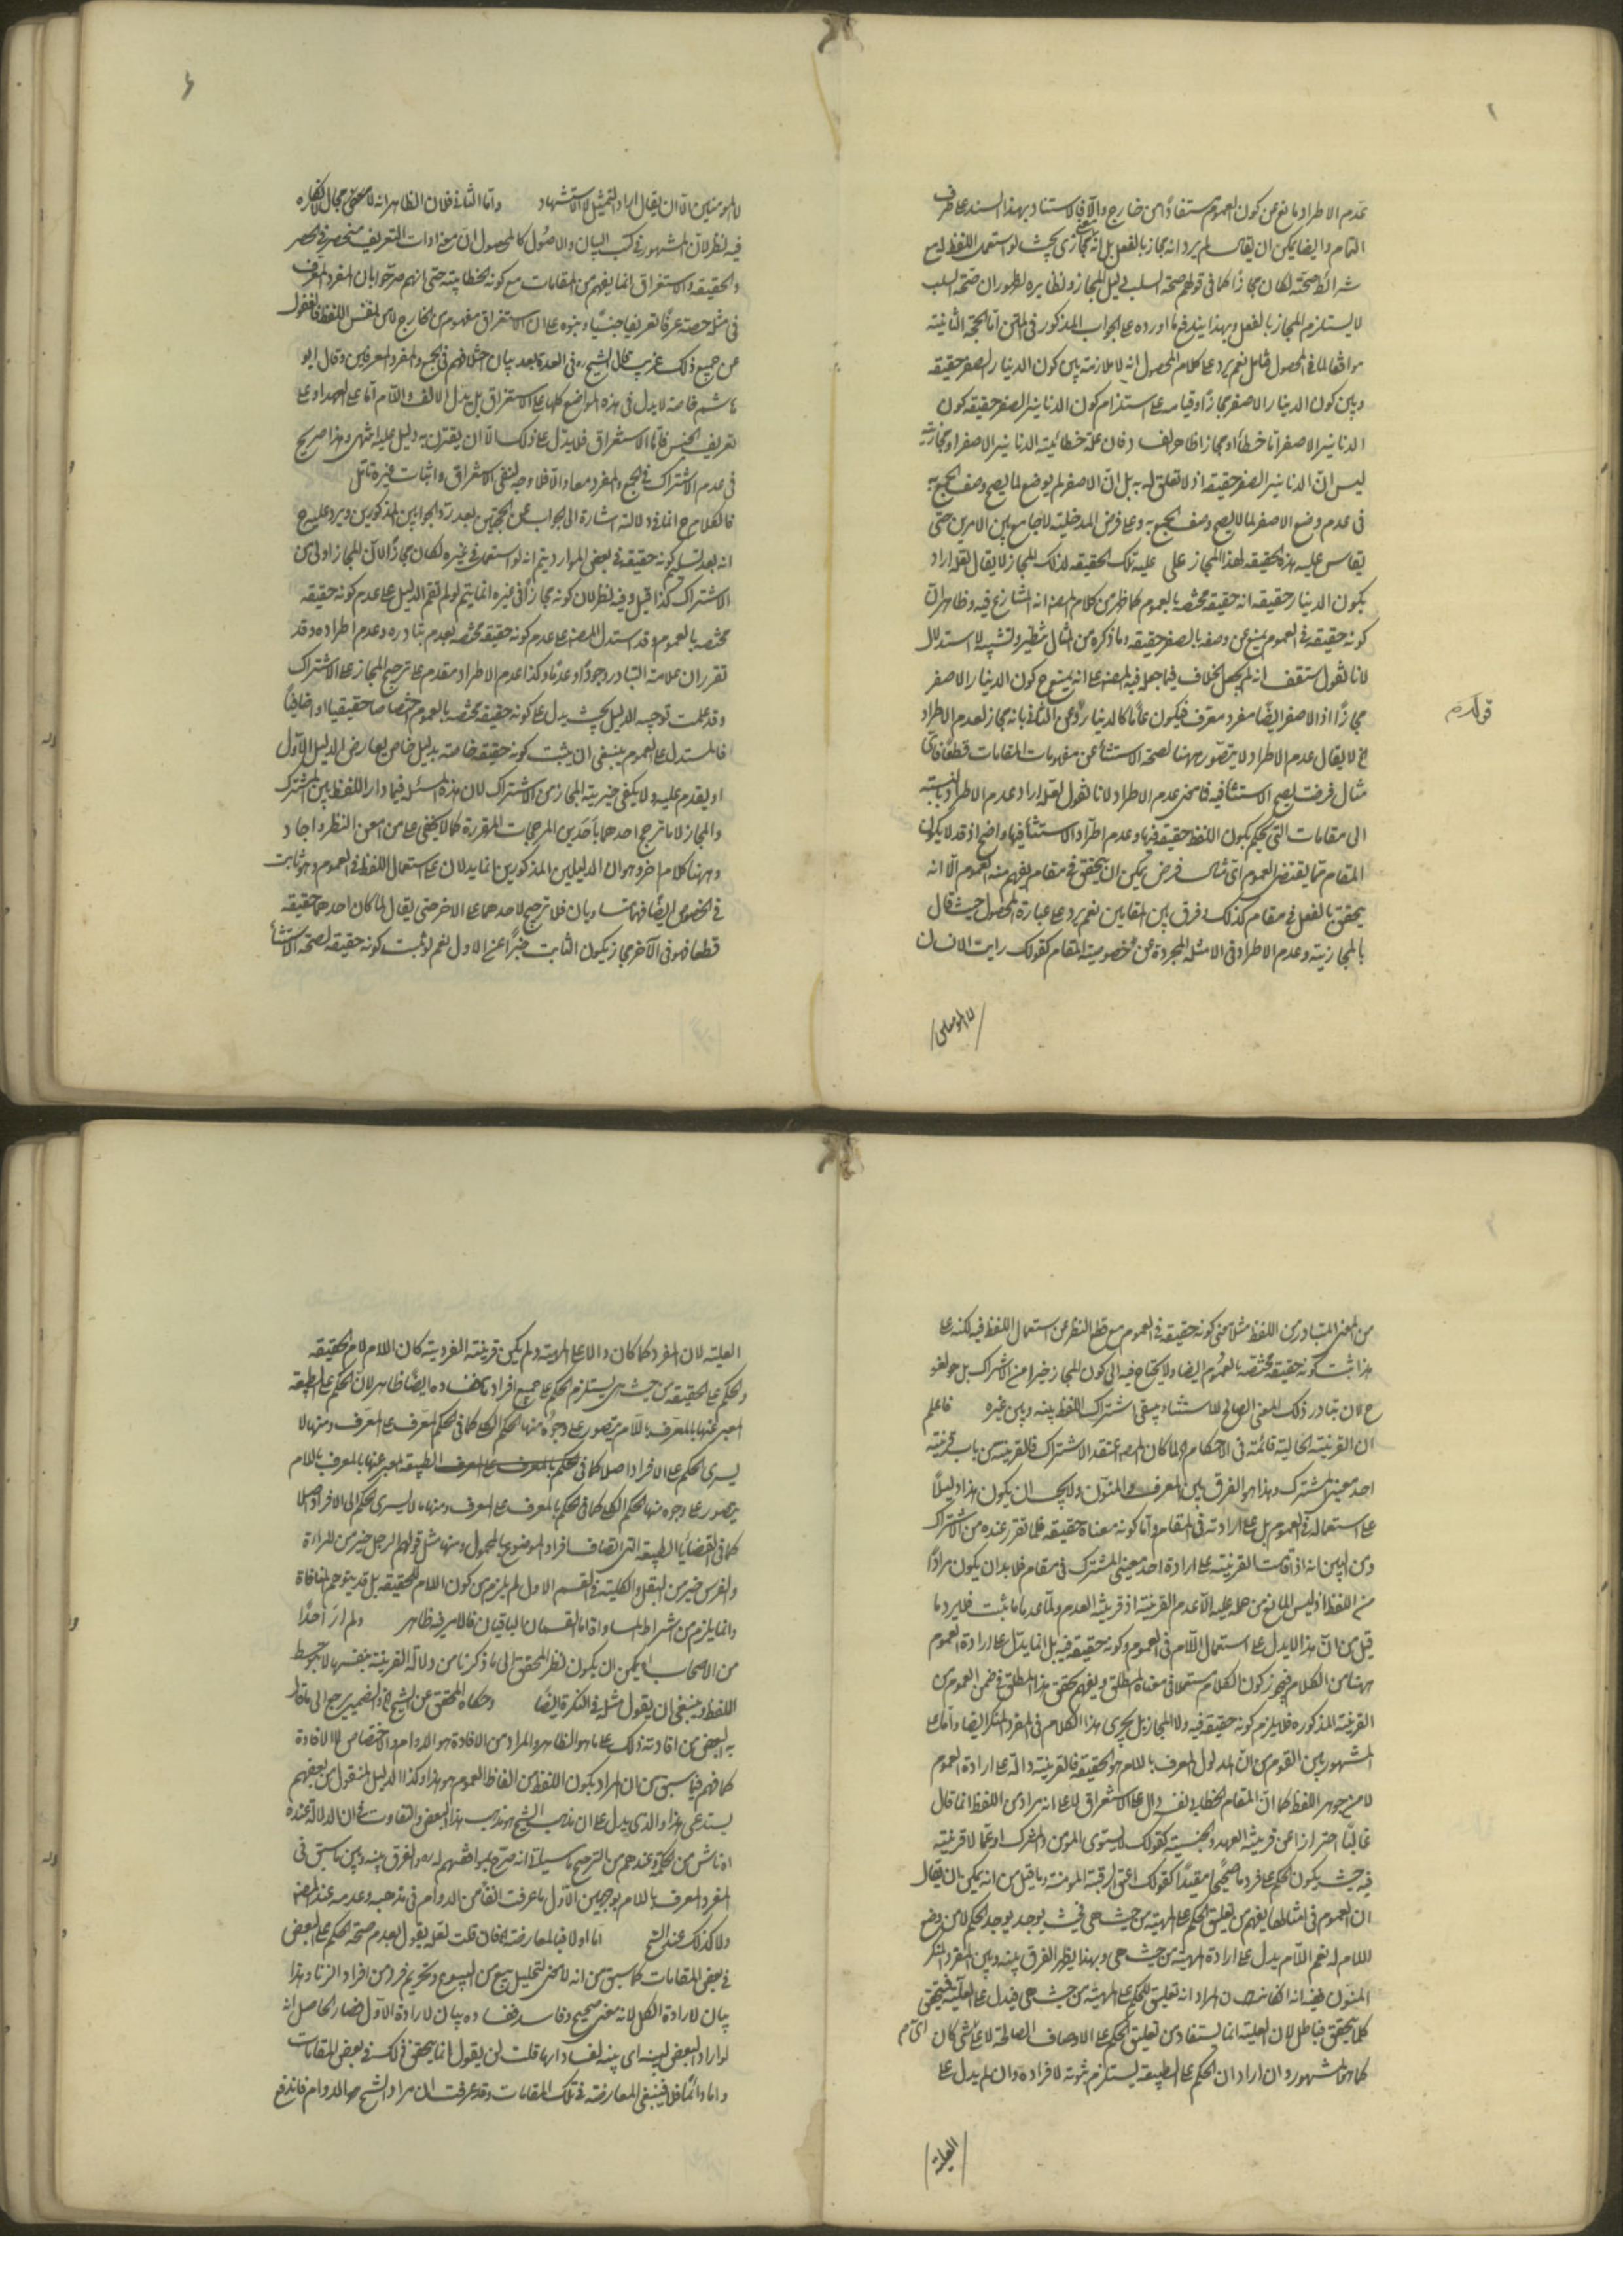 عدم الاطراد مانع من كون العموم مستفادا من خارج والا فالاستناد بهذا السند على طرف
التمام وايضا يمكن ان يقال لم يرد انه مجاز بالفعل بل انه مجازى بحيث لو استعمل اللفظ فيه مع
شرائط صحته لكان مجازا كما فى قولهم صحة السلب دليل المجاز ونظايره لظهور ان صحة السلب
لا يستلزم المجاز بالفعل وبهذا يندفع ما اورده على الجواب المذكور فى المتن اما الحجة الثانية
موافقا لما فى المحصول فتامل نعم يرد على كلام المحصول انه لا ملازمة بين كون الدينار الصفر حقيقة
وبين كون الدينار الاصفر مجازا وقياسه على استلزام كون الدنانير الصفر حقيقة كون
الدنانير الاصفر اما خطأ او مجازا ظاهر الفساد فان علة خطائية الدنانير الاصفر او مجازيته
ليس ان الدنانير الصفر حقيقة اذ لا تعلق له به بل ان الاصفر لم يوضع لما يصح وصف الجمع به
فى عدم وضع الاصفر لما لا يصح وصف الجمع به وعلى فرض المدخلية لا جامع بين الامرين حتى
يقاس عليه هذه الحقيقة لهذا المجاز على علية تلك الحقيقة لذلك المجاز لا يقال لعله اراد
بكون الدينار حقيقة انه حقيقة مختصة بالعموم كما ظهر من كلام المصنف انه المتنازع فيه وظاهر ان
كونه حقيقة فى العموم يمنع من وصفه بالصفر حقيقة وما ذكره من المثال تنظير وتشبيه لا استدلال
لانا نقول ستقف انه لم يجعل الخلاف فيما جعله فيه المصنف على انه يمنع كون الدينار الاصفر
مجازا اذ الاصفر ايضا مفرد معرف فيكون عاما كالدينار وعن الثانى بانه مجاز لعدم الاطراد
الخ لا يقال عدم الاطراد لا يتصور ههنا لصحة الاستثناء عن مفهومات المقامات قطعا فاى
مثال فرضت يصح الاستثناء فيه فاين عدم الاطراد لانا نقول لعله اراد عدم الاطراد بالنسبة
الى مقامات التى يحكم بكون اللفظ حقيقة فيها وعدم اطراد الاستثناء فيها واضح اذ قد لا يكون
المقام مما يقتضى العموم اى مثال فرض يمكن ان يتحقق فى مقام يفهم منه العموم الا انه
يتحقق بالفعل فى مقام كذلك وفرق بين المقامين نعم يرد على عبارة المحصول حيث قال
بالمجازية وعدم الاطراد فى الامثلة المجردة عن خصوصية المقام كقولك رايت الانسان
قوله
الا المؤمنين
لا المؤمنين الا ان يقال اراد التمثيل لا الاستشهاد واما الثانى فلان الظاهر انه لا معنى مجال لانكاره
فيه نظر لان المشهور فى كتب البيان والاصول كالمحصول ان معنى ادات التعريف منحصر فى الحصر
والحقيقة والاستغراق انما يفهم من المقامات مع كونها خطابية حتى انهم صرحوا بان المفرد المعرف
فى مثل حصة عرفا تعريفا جنسيا وبنوه على ان الاستغراق مفهوم من الخارج لا من نفس اللفظ فالغفول
عن جميع ذلك غريب قال الشيخ ره فى العدة بعد بيان اختلافهم فى الجمع والمفرد المعرفين وقال ابو
هاشم خاصة لا يدل فى هذه المواضع كلها على الاستغراق بل يدل الالف واللام اما على العهد او على
تعريف الجنس فاما الاستغراق فلا يدل على ذلك الا ان يقترن به دليل عليه انتهى وهذا صريح
فى عدم الاشتراك فى الجمع والمفرد معا والا فلا وجه لنفى الاستغراق واثبات غيره تامل
فالكلام ح انما فى دلالته اشارة الى الجواب عن الحجتين بعد رد الجوابين المذكورين ويرد عليه ح
انه بعد تسليم كونه حقيقة فى بعض الموارد يتم انه لو استعمل فى غيره لكان مجازا لان المجاز اولى من
الاشتراك كذا قيل وفيه نظر لان كونه مجازا فى غيره انما يتم لو لم يقم الدليل على عدم كونه حقيقة
مختصة بالعموم وقد استدل المصنف على عدم كونه حقيقة مختصة بعدم تبادره وعدم اطراده وقد
تقرر ان علامة التبادر وجودا وعدما وكذا عدم الاطراد مقدم على ترجيح المجاز على الاشتراك
وقد علمت توجيه الدليل بحيث يدل على كونه حقيقة مختصة بالعموم اختصاصا حقيقيا او اضافيا
فالمستدل على العموم ينبغى ان يثبت كونه حقيقة خاصة بدليل خاص يعارض الدليل الاول
او يقدم عليه ولا يكفى خيرية المجاز من الاشتراك لان هذه المسئلة فيما دار اللفظ بين المشترك
والمجاز لا ما ترجح احدهما باحد من المرجحات المقررة كما لا يخفى على من امعن النظر واجاد
وههنا كلام اخر وهو ان الدليلين المذكورين انما يدلان على استعمال اللفظ فى العموم وهو ثابت
فى الخصوص ايضا فهما متساويان فلا ترجيح لاحدهما على الاخر حتى يقال لما كان احدهما حقيقة
قطعا فهو فى الاخر مجاز فيكون الثابت خبرا عن الاول نعم لو ثبت كونه حقيقة لصحة الاستثناء
من المعنى المتبادر من اللفظ مثلا معنى كونه حقيقة فى العموم مع قطع النظر عن استعمال اللفظ فيه لكنه على
هذا يثبت كونه حقيقة مختصة بالعموم ايضا ولا يحتاج فيه الى كون المجاز خيرا من الاشتراك بل هو لغو
ح لان تبادر ذلك المعنى الصالح للاستثناء ينفى اشتراك اللفظ بينه وبين غيره فاعلم
ان القرينة الحالية قائمة فى الاحكام الخ لما كان المصنف اعتقد الاشتراك فالقرينة من باب قرينة
احد معنيى المشترك وهذا هو الفرق بين المعرف والمنون ولا يجب ان يكون هذا دليلا
على استعماله فى العموم بل على ارادته فى المقام واما كونه معناه حقيقة فلما تقرر عنده من الاشتراك
ومن البين انه اذا قامت القرينة على ارادة احد معنيى المشترك فى مقام فلا بد ان يكون مرادا
من اللفظ اذ ليس المانع من حمله عليه الا عدم القرينة اذ قرينة العدم ولما عدما ثبت فلا يرد ما
قيل من ان هذا لا يدل على استعمال اللام فى العموم وكونه حقيقة فيه بل انما يدل على ارادة العموم
ههنا من الكلام فيجوز كون الكلام مستعملا فى معناه المطلق ويفهم تحقق هذا المطلق فى ضمن العموم من
القرينة المذكورة فلا يلزم كونه حقيقة فيه ولا المجاز بل يجرى هذا الكلام فى المفرد المنكر ايضا واما على
المشهور بين القوم من ان المدلول المعرف باللام هو الحقيقة فالقرينة دالة على ارادة العموم
لا من جوهر اللفظ كما ان المقام الخطابى دال على الاستغراق لا على انه مراد من اللفظ انما قال
غالبا احترازا عن قرينة العهد والجنسية كقولك لا يستوى المؤمن والمشرك او عما لا قرينة
فيه حيث يكون الحكم على فرد ما صحيحا مقيدا كقولك اعتق الرقبة المؤمنة وما قيل من انه يمكن ان يقال
ان العموم فى امثالها يفهم من تعليق الحكم على المهية من حيث هى فحيث يوجد يوجد الحكم لا من وضع
اللام له نعم اللام يدل على ارادة المهية من حيث هى وبهذا يظهر الفرق بينه وبين المفرد المنكر
المنون ففيه انه ان كان المراد انه تعليق الحكم على المهية من حيث هى فيدل على العلية فيتحقق
كلما يتحقق فباطل لان العلية انما يستفاد من تعليق الحكم على الاوصاف الصالحة لا على اى شىء كان
كما هو المشهور وان اراد ان الحكم على الطبيعة يستلزم ثبوته لافراده وان لم يدل على
العلية
العلية لان المفرد كما كان دالا على المهية ولم يكن قرينة الفردية كان اللام لام الحقيقة
والحكم على الحقيقة من حيث هى يستلزم الحكم على جميع افراده ففساده ايضا ظاهر لان الحكم على الطبيعة
المعبر عنها بالمعرف باللام يتصور على وجوه منها الحكم الكلى كما فى الحكم المعرف على المعرف ومنها لا
يسرى الحكم على الافراد اصلا كما فى الحكم بالمعرف على المعرف الطبيعة المعبر عنها بالمعرف باللام
يتصور على وجوه منها الحكم الكلى كما فى الحكم بالمعرف على المعرف ومنها ما لا يسرى الحكم الى الافراد اصلا
كما فى القضايا الطبيعة التى اتصاف افراد الموضوع بالمحمول ومنها مثل قولهم الرجل خير من المراة
والفرس خير من البغل والكلية فى القسم الاول لم يلزم من كون اللام للحقيقة بل قد يتوهم المنافاة
وانما يلزم من اشتراط المساواة اما القسمان الباقيان فالامر فيه ظاهر ولم ار احدا
من الاصحاب الخ يمكن ان يكون نظر المحقق الى ما ذكرنا من دلالة القرينة بنفسها لا بتوسط
اللفظ وينبغى ان يقول مثله فى النكرة ايضا وحكاه المحقق عن الشيخ الخ والضمير يرجع الى ما قال
به البعض من افادته ذلك على ما هو الظاهر والمراد من الافادة هو الدوام والاختصاص لا الافادة
كما فهم فيما سبق من ان المراد بكون اللفظ من الفاظ العموم هو هذا وكذا الدليل المنقول من بعضهم
يستدعى هذا والذى يدل على ان مذهب الشيخ هو مذهب هذا البعض والتفاوت فى ان الدلالة عنده
ناش من الحكمة وعندهم من الترجيح ما سيأتى انه صرح بموافقتهم له ره والفرق بينه وبين ما سبق فى
المفرد المعرف باللام بوجهين الاول ما عرفت آنفا من الدوام فى مذهبه وعدمه عند المصنف
ولا كذلك عند الشيخ اما اولا فبالمعارضة الخ فان قلت لعله يقول بعدم صحة الحكم على البعض
فى بعض المقامات كما سبق من انه لا معنى لتحليل بيع من البيوع وتحريم فرد من افراد الزنا وهذا
بيان لارادة الكل لانه معنى صحيح وفاسد ففساده بيان لارادة الاول فصار الحاصل انه
لو اراد البعض لبينه اى بينه لفساد ارادة ما قلت لمن يقول انما يتحقق ذلك فى بعض المقامات
واما دائما فلا فينبغى المعارضة فى تلك المقامات وقد عرفت ان مراد الشيخ هو الدوام فاندفع